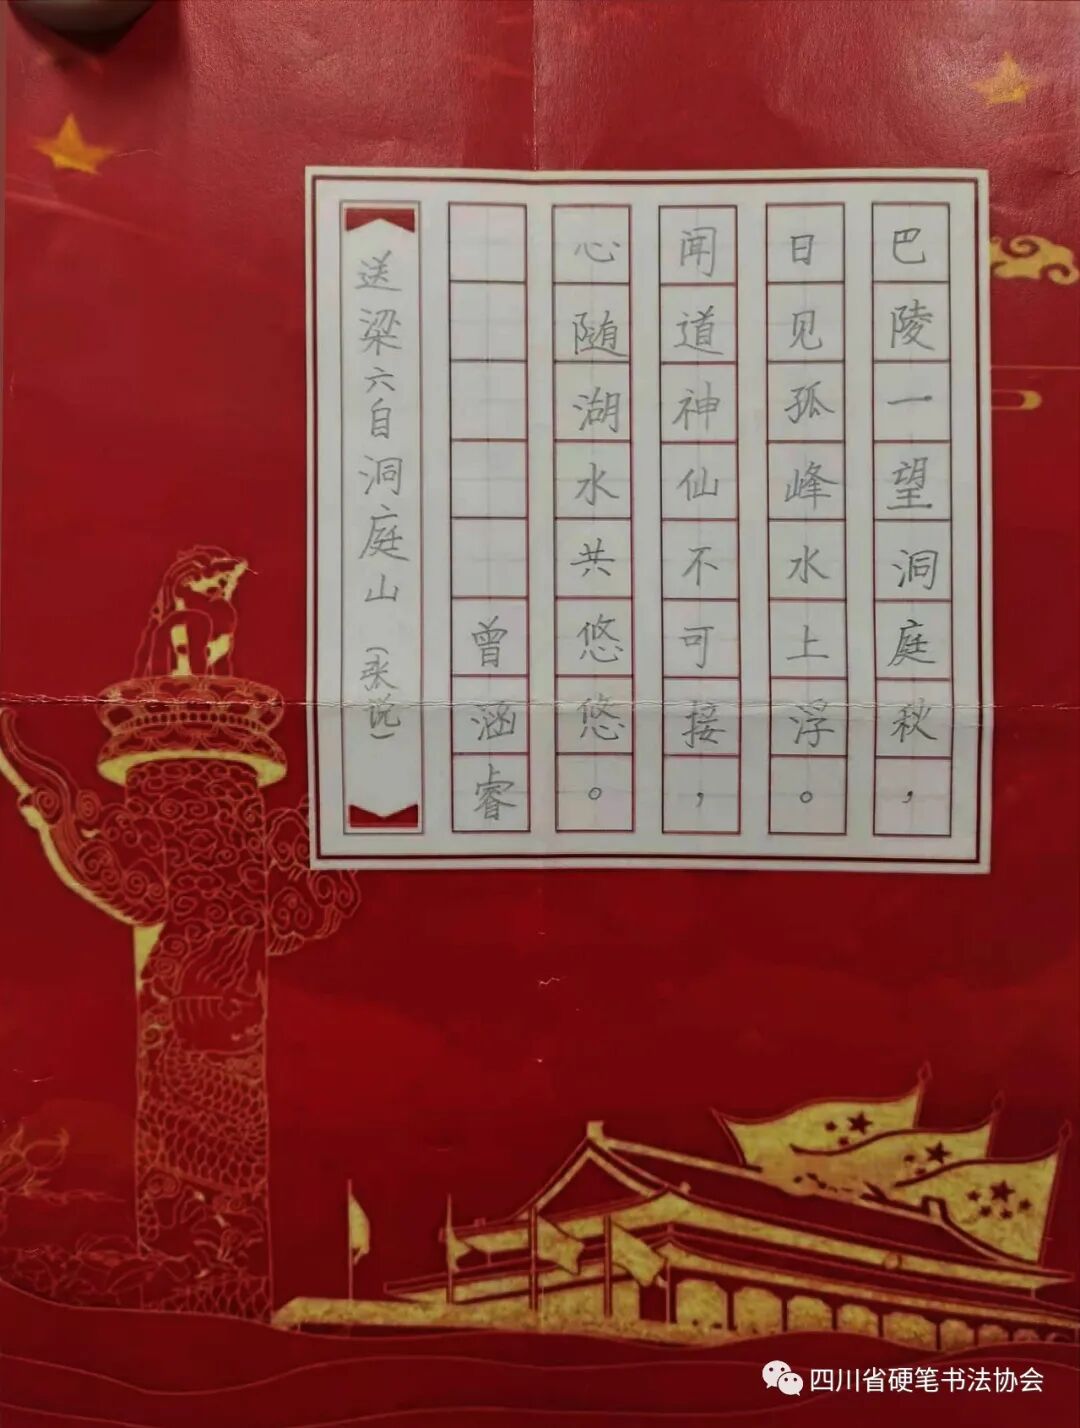 巴陵一望洞庭秋，
日见孤峰水上浮。
闻道神仙不可接，
心随湖水共悠悠。
曾涵睿
送梁六自洞庭山（张说）
四川省硬笔书法协会